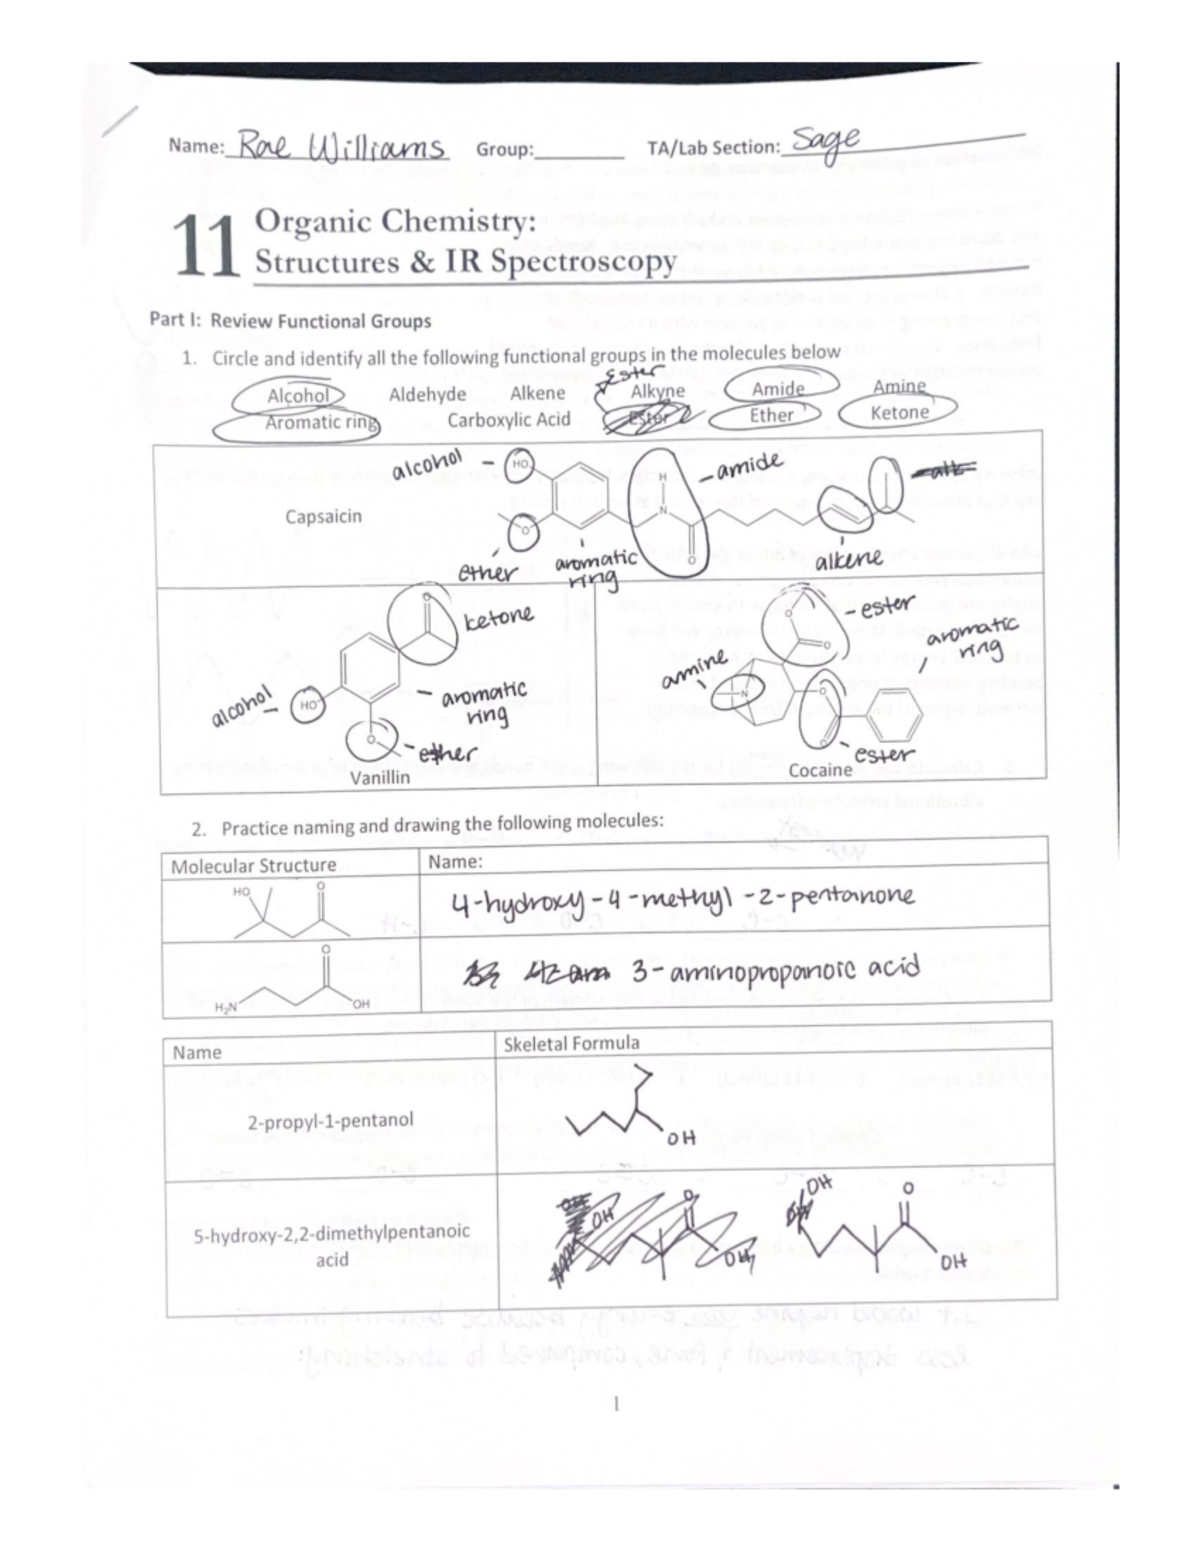 Name: Rae Williams Group: TA/Lab Section: Sage
11 Organic Chemistry:
Structures & IR Spectroscopy
Part I: Review Functional Groups
1. Circle and identify all the following functional groups in the molecules below
Ester
Alcohol Aldehyde Alkene Alkyne Amide Amine
Aromatic ring Carboxylic Acid Ester Ether Ketone
alcohol HO H amide
Capsaicin N
O O
ether aromatic ring alkene
O ketone
alcohol HO aromatic ring
O ether
Vanillin
O ester
O aromatic ring
amine N O
O ester
Cocaine
2. Practice naming and drawing the following molecules:
Molecular Structure Name:
HO O 4-hydroxy-4-methyl-2-pentanone
O
H₂N OH 3-aminopropanoic acid
Name Skeletal Formula
2-propyl-1-pentanol OH
5-hydroxy-2,2-dimethylpentanoic acid OH O OH OH O OH
1